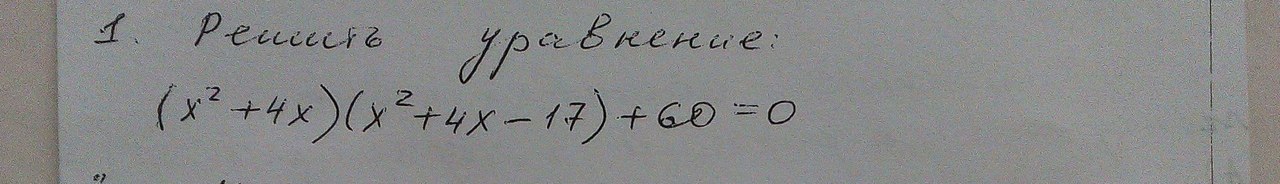 1. Решить уравнение:
(x²+4x)(x²+4x-17)+60=0